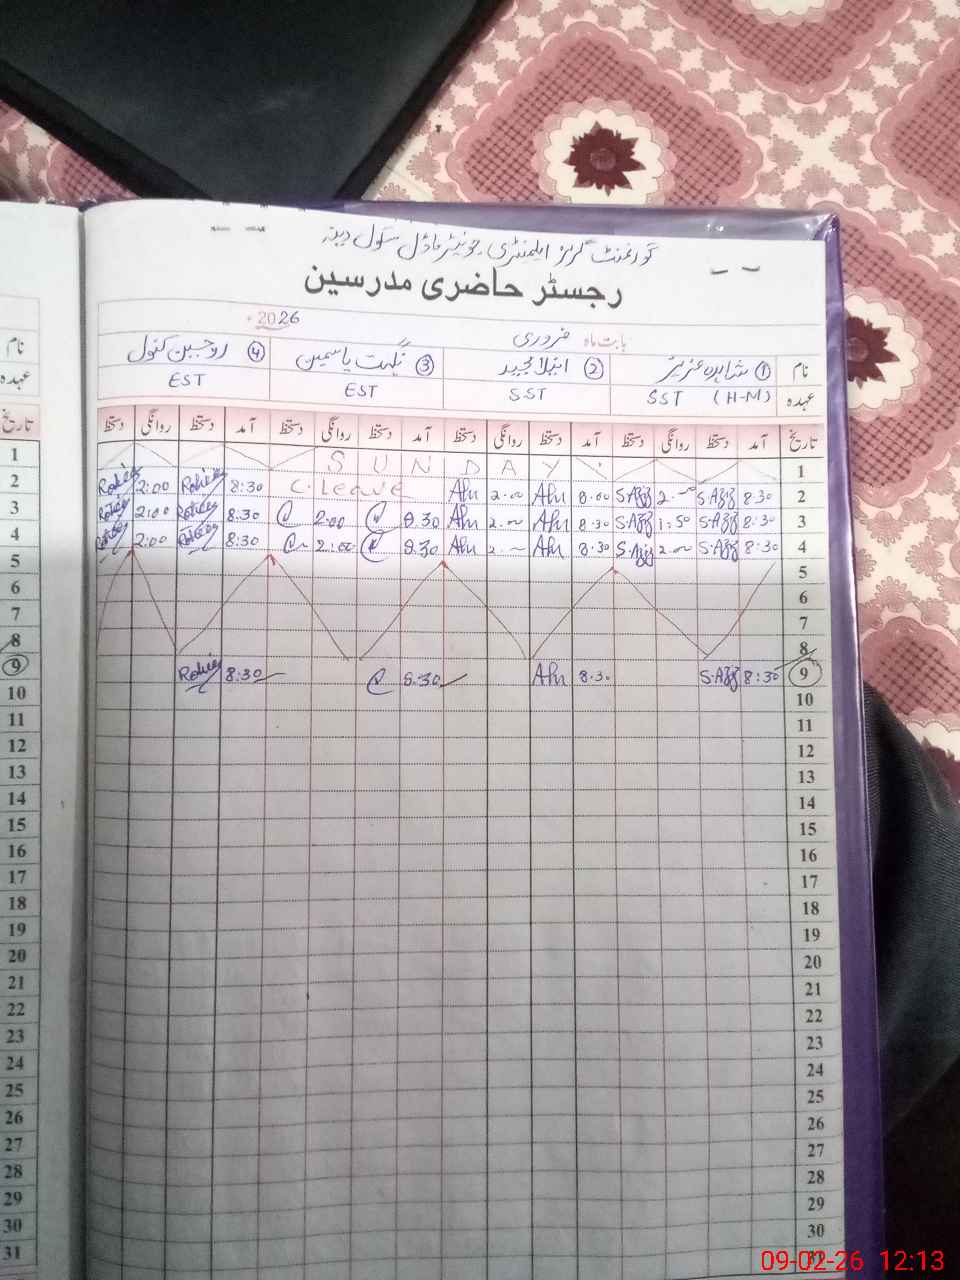 گورنمنٹ گرلز ایلیمنٹری جونیئر ماڈل سکول دینہ
رجسٹر حاضری مدرسین
بابت ماہ فروری 2026ء
نام ① شاہدہ عزیز ② انیلا مجید ③ نگہت یاسمین ④ روحبین کنول
عہدہ SST (H-M) SST EST EST
تاریخ آمد دستخط روانگی دستخط آمد دستخط روانگی دستخط آمد دستخط روانگی دستخط آمد دستخط روانگی دستخط
1 SUNDAY
2 8:30 S.Azz 2.00 S.Azz 8.00 2.00 C.Leave 8:30 2:00
3 8:30 S.Azz 1:50 S.Azz 8.30 2.00 8.30 2.00 8:30 2:00
4 8:30 S.Azz 2.00 S.Azz 8.30 2.00 8.30 2:00 8:30 2:00
5
6
7
8
9 8:30 S.Azz 8.30 8.30 8:30
10
11
12
13
14
15
16
17
18
19
20
21
22
23
24
25
26
27
28
29
30
31
نام
عہدہ
تاریخ
1
2
3
4
5
6
7
8
9
10
11
12
13
14
15
16
17
18
19
20
21
22
23
24
25
26
27
28
29
30
31
09-02-26 12:13